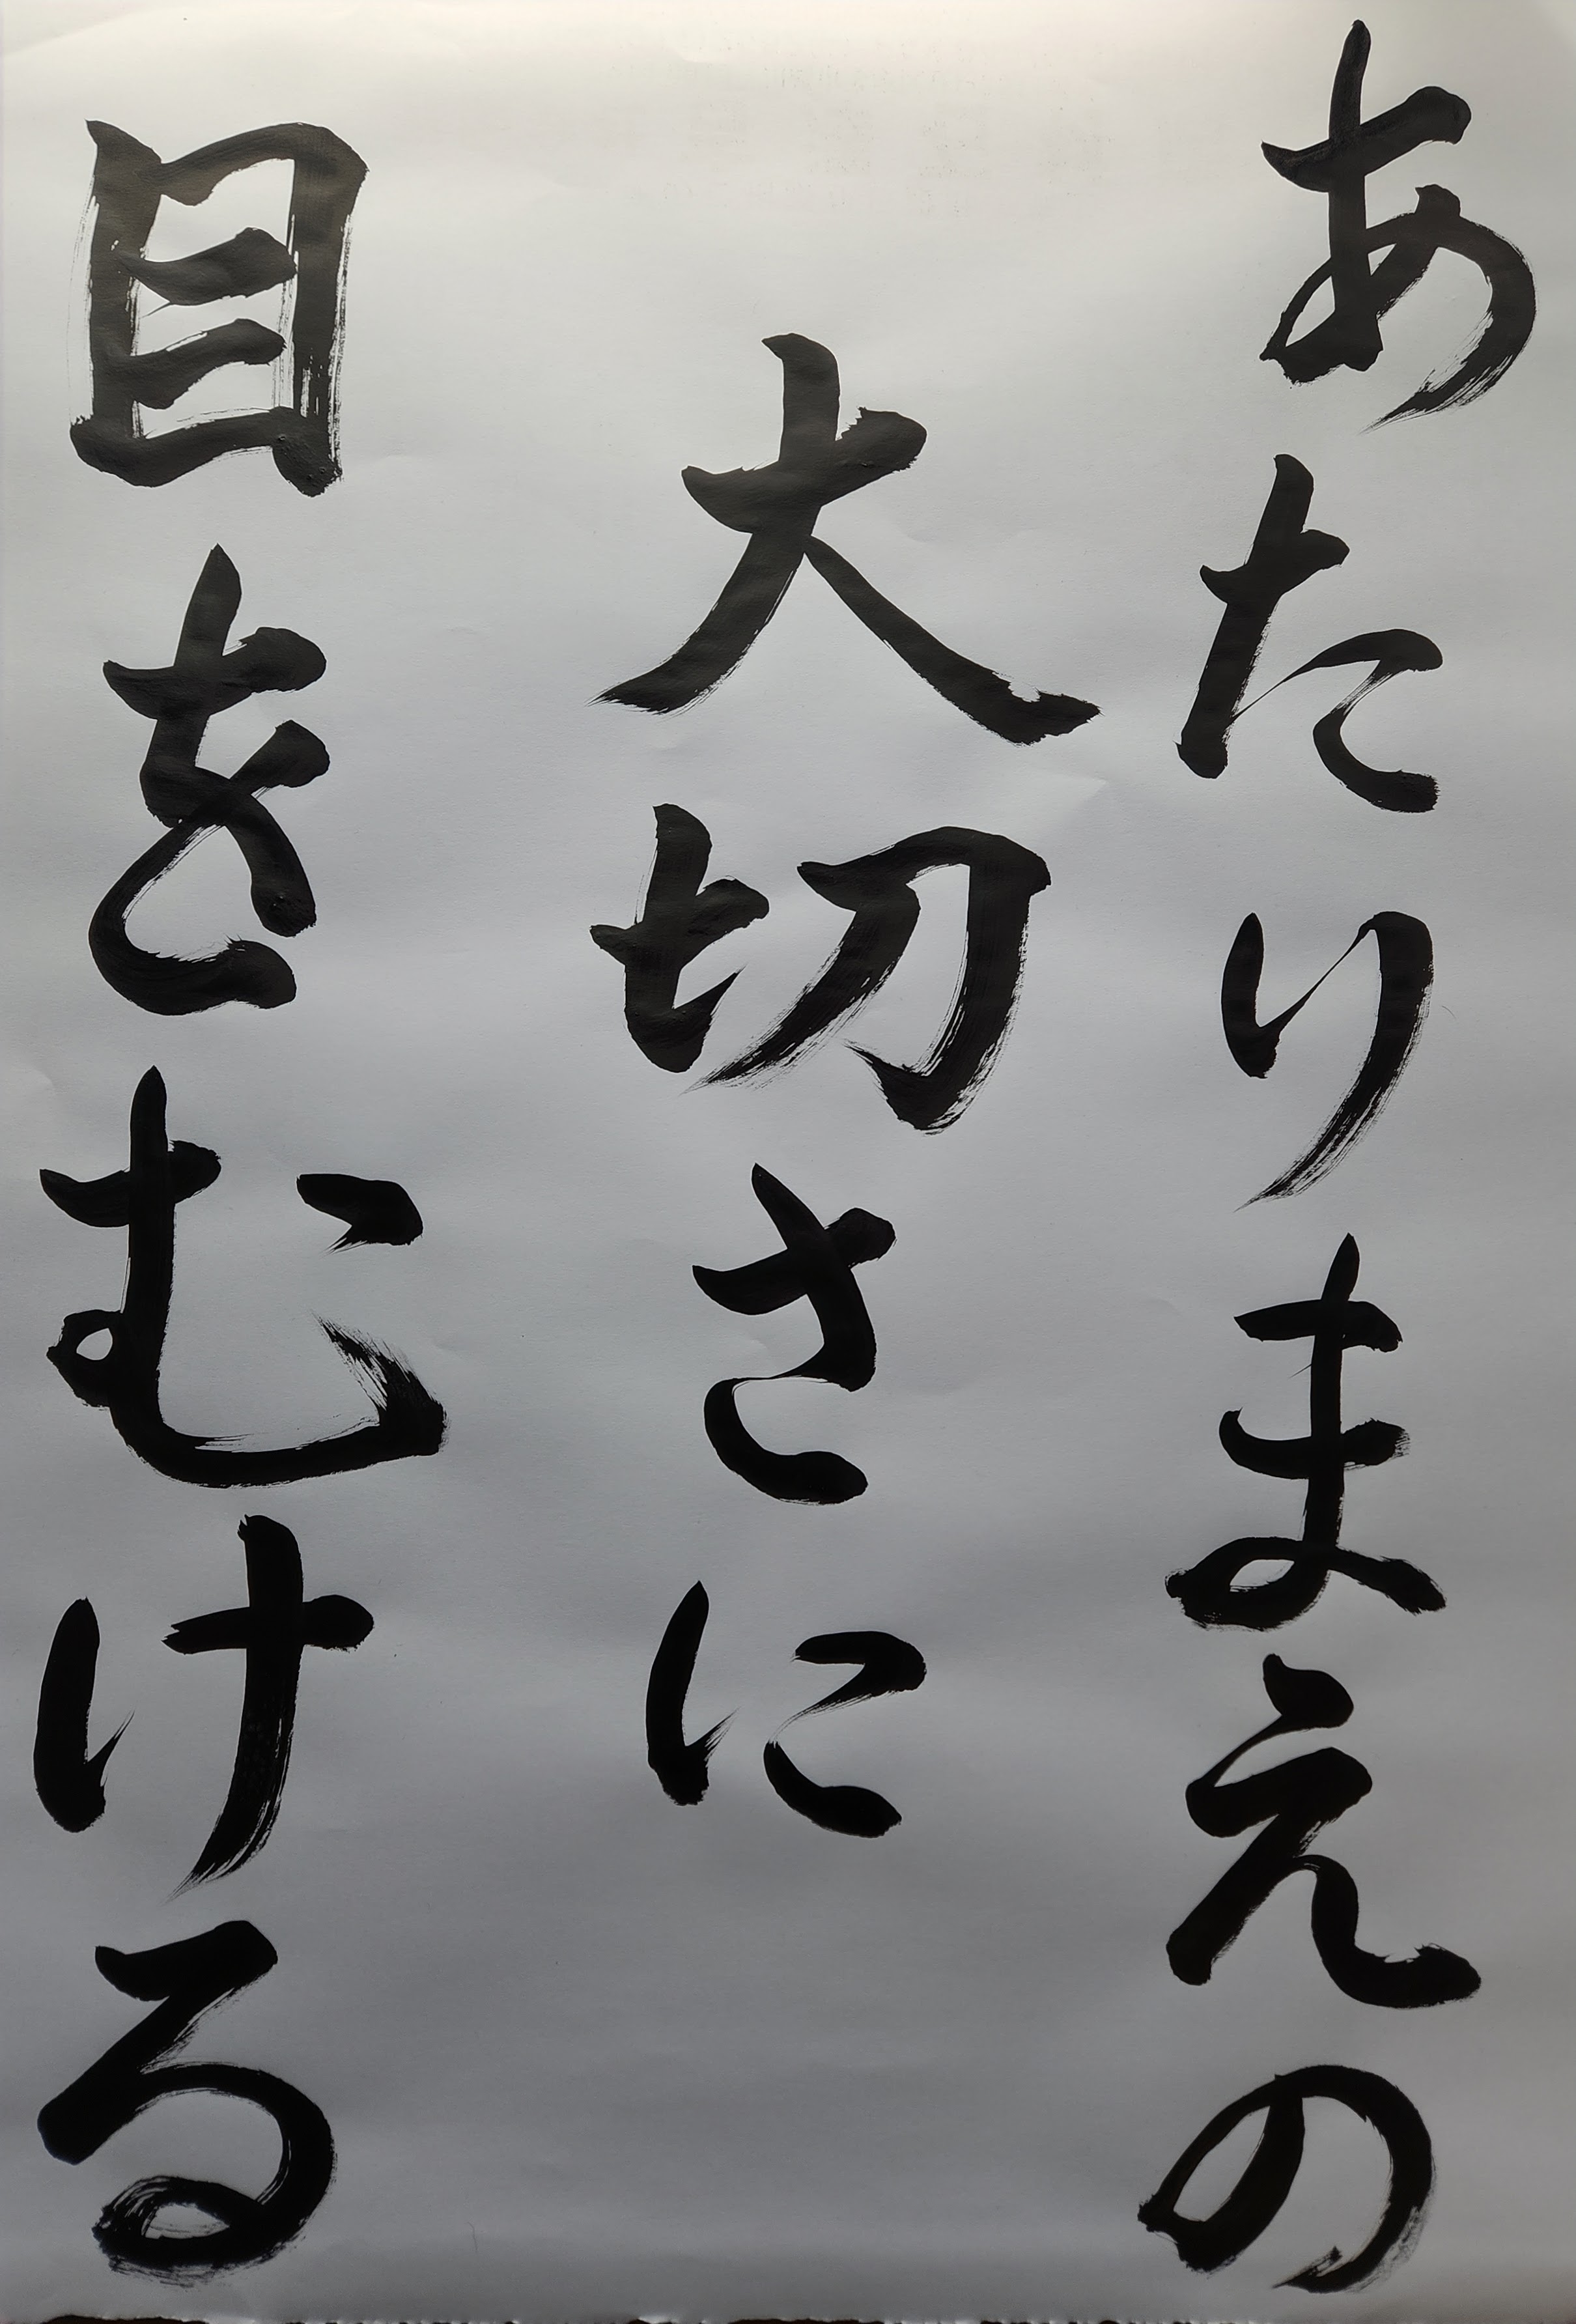 あたりまえの
大切さに
目をむける